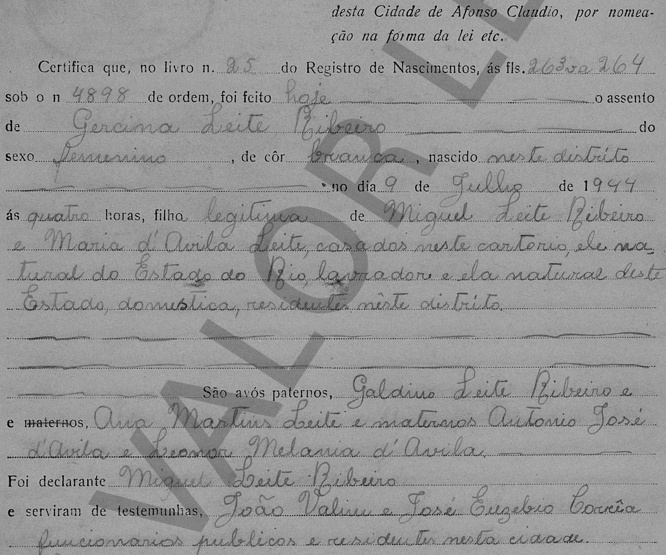 desta Cidade de Afonso Claudio, por nomea-
ção na fórma da lei etc.
Certifica que, no livro n. 25 do Registro de Nascimentos, ás fls. 263 va 264
sob o n 4898 de ordem, foi feito hoje o assento
de Gercina Leite Ribeiro do
sexo femenino, de côr branca, nascido neste distrito
no dia 9 de Julho de 1944
ás quatro horas, filho legitima de Miguel Leite Ribeiro
e Maria d'Avila Leite, casados neste cartorio, ele na-
tural do Estado do Rio, lavrador e ela natural deste
Estado, domestica, residentes nêste distrito.
São avós paternos, Galdino Leite Ribeiro e
e maternos, Ana Martins Leite e maternos Antonio José
d'Avila e Leonor Melania d'Avila.
Foi declarante Miguel Leite Ribeiro
e serviram de testemunhas, João Valim e José Euzebio Corrêa
funcionarios publicos e residentes nesta cidade.
VALOR LE